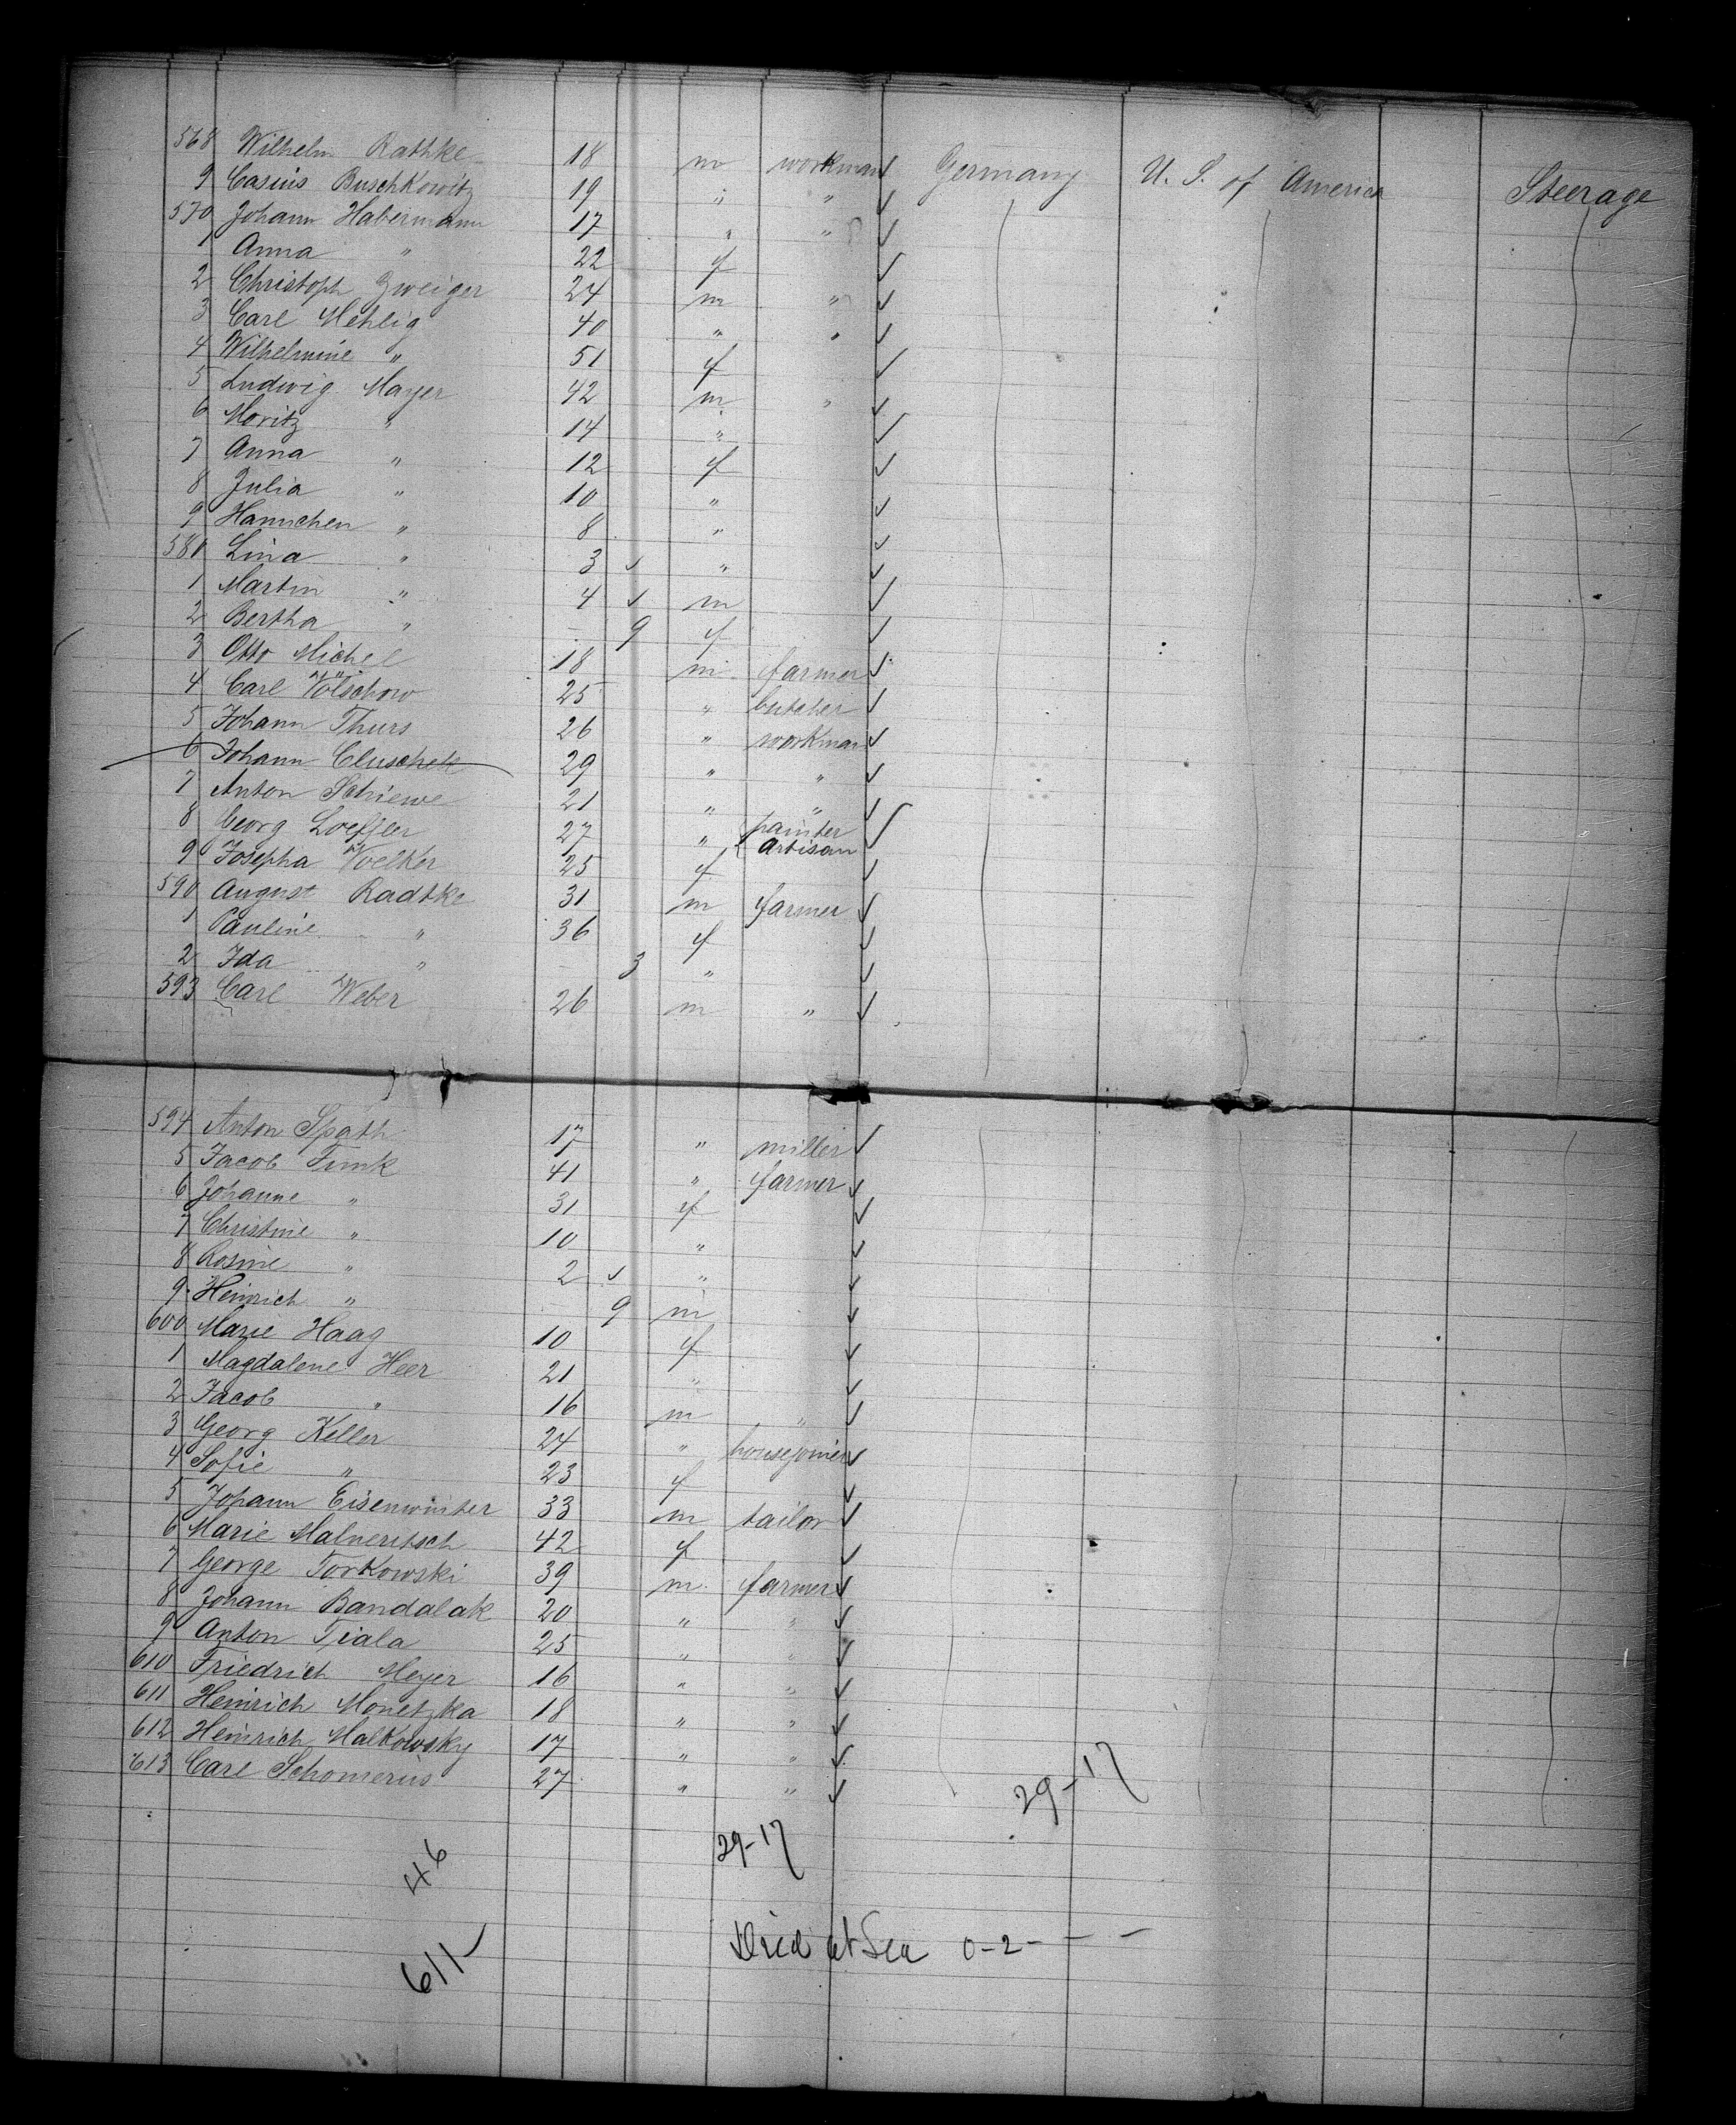 568 Wilhelm Rathke 18 m workman Germany U. S. of America Steerage
9 Casius Buschkowitz 19 " "
570 Johann Habermann 17 " "
1 Anna " 22 f
2 Christoph Zweiger 24 m "
3 Carl Mehlig 40 " "
4 Wilhelmine " 51 f
5 Ludwig Mayer 42 m "
6 Moritz " 14 "
7 Anna " 12 f
8 Julia " 10 "
9 Hannchen " 8 "
580 Lina " 3 "
1 Martin " 4 m
2 Bertha " 9 f
3 Otto Michel 18 m farmer
4 Carl Völschow 25 " butcher
5 Johann Thurs 26 " workman
6 Johann Cluschek 29 " "
7 Anton Schiewe 21 " "
8 Georg Loeffler 27 " painter Artisan
9 Josepha Voelker 25 f
590 August Radtke 31 m farmer
1 Pauline " 36 f
2 Ida " 3 "
593 Carl Weber 26 m "
594 Anton Späth 17 " miller
5 Jacob Funk 41 " farmer
6 Johanne " 31 f
7 Christine " 10 "
8 Rosine " 2 "
9 Heinrich " 9 m
600 Marie Haag 10 f
1 Magdalene Heer 21 "
2 Jacob " 16 m "
3 Georg Keller 24 " housejoiner
4 Sofie " 23 f
5 Johann Eisenwinter 33 m tailor
6 Marie Malneritsch 42 f
7 George Torkowski 39 m farmer
8 Johann Bandalak 20 " "
9 Anton Fiala 25 " "
610 Friedrich Meyer 16 " "
611 Heinrich Monetzka 18 " "
612 Heinrich Malkowsky 17 " "
613 Carl Schomerus 27 " "
29-17
29-17
46
Died at Sea 0-2- - -
611